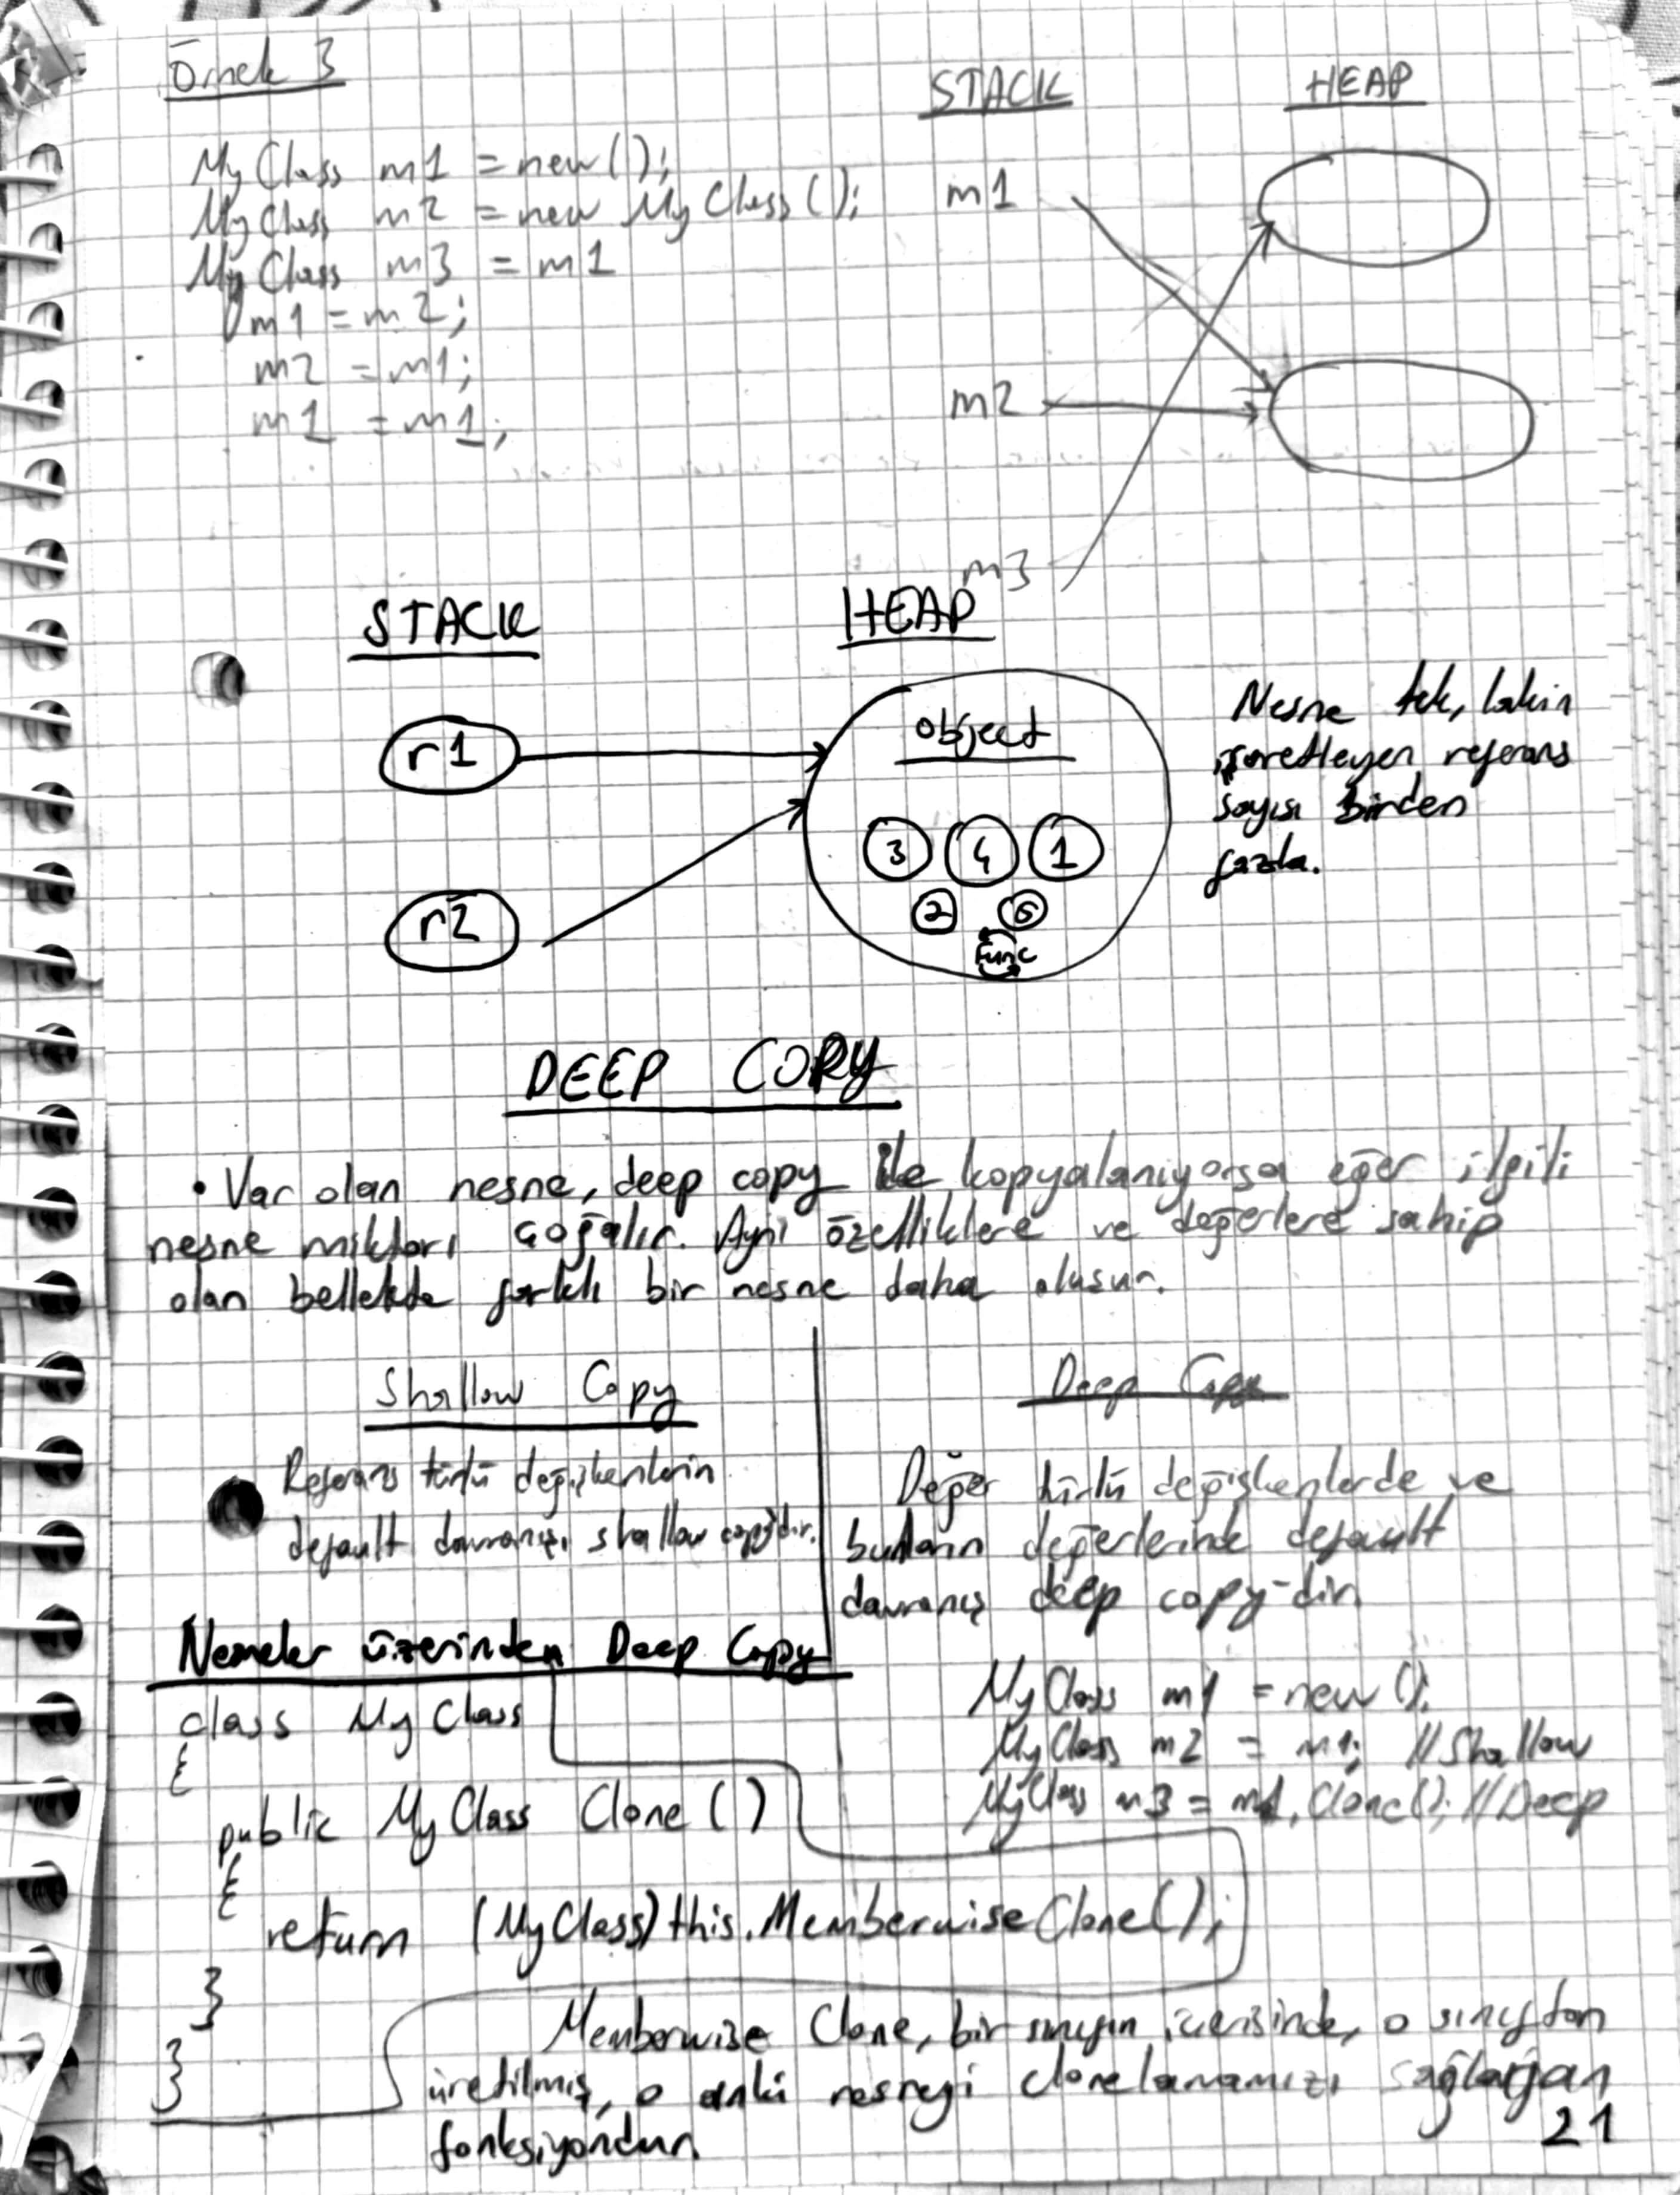 Örnek 3
STACK
HEAP
MyClass m1 = new();
MyClass m2 = new MyClass();
MyClass m3 = m1
m1 = m2;
m2 = m1;
m1 = m1;
m1
m2
m3
STACK
HEAP
r1
r2
object
3 4 1
2
Func
Nesne tek, lakin
işaretleyen referans
sayısı birden
fazla.
DEEP COPY
• Var olan nesne, deep copy ile kopyalanıyorsa eğer ilgili
nesne miktarı çoğalır. Ayni özelliklere ve değerlere sahip
olan bellekde farklı bir nesne daha oluşur.
Shallow Copy
Referans türlü değişkenlerin
default davranışı shallow copydir.
Deep Copy
Değer türlü değişkenlerde ve
bunların değerlerinde default
davranış deep copy-dir.
Nesneler üzerinden Deep Copy
class MyClass
{
public MyClass Clone()
{
return (MyClass)this.MemberwiseClone();
}
}
MyClass m1 = new();
MyClass m2 = m1; //Shallow
MyClass m3 = m1.Clone(); //Deep
Memberwise Clone, bir sınıfın içerisinde, o sınıftan
üretilmiş, o anki nesneyi clonelamamızı sağlayan
fonksiyondur.
21